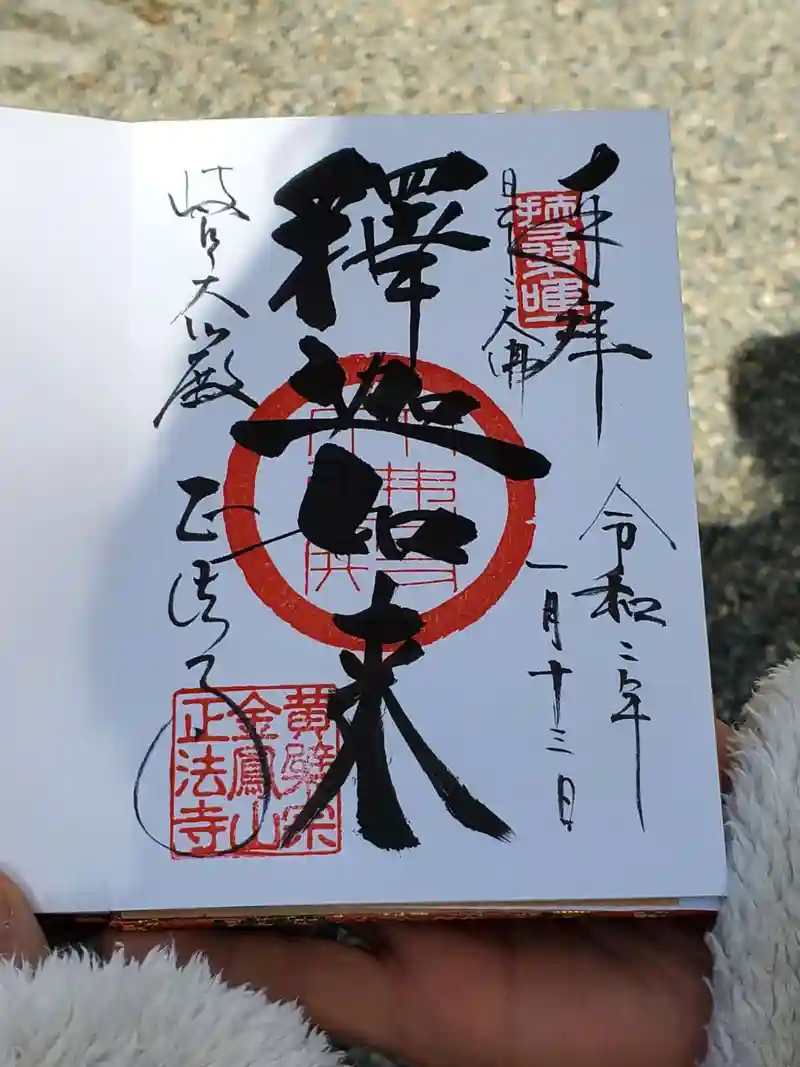 奉拝
日本三大佛
令和二年
一月十三日
釋迦如来
岐阜大仏殿
正法寺
黄檗宗
金鳳山
正法寺